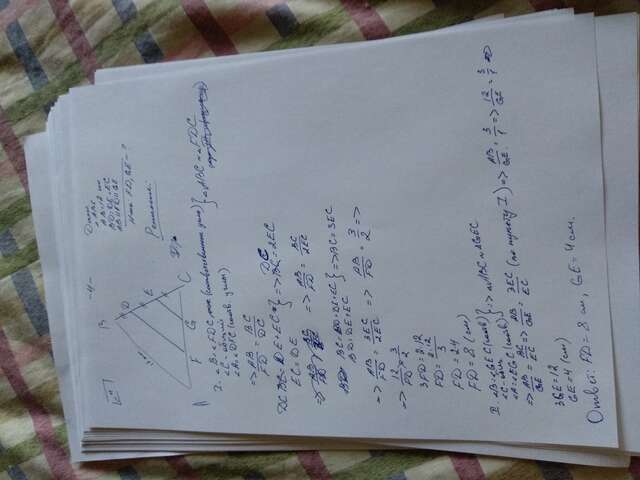 -4-
B
D
E
12 см
A F G C
Дано:
△ABC
AB=12 см
BD=DE=EC
AB || FD || GE
Найти FD, GE - ?
Решение:
I. ∠B=∠FDC (соответственные углы)
∠C - общий
∠A=∠DFC (соотв. углы) } △ABC ~ △FDC
=> AB/FD = BC/DC
DC = DE+EC
EC = DE } => DC = 2EC
=> AB/FD = BC/2EC
BC = BD+DE+EC
BD=DE=EC } => BC=3EC
=> AB/FD = 3EC/2EC => AB/FD = 3/2 =>
=> 12/FD = 3/2
3FD=2·12
FD= 2·12/3
FD=2·4
FD=8 (см)
II. ∠B=∠GEC (соотв)
∠C - общ
∠A=∠EGC (соотв) } => △ABC ~ △GEC
=> AB/GE = BC/EC => AB/GE = 3EC/EC (по пункту I) => AB/GE = 3/1 => 12/GE = 3/1 =>
3GE=12
GE=4 (см)
Ответ: FD = 8 см, GE = 4 см.